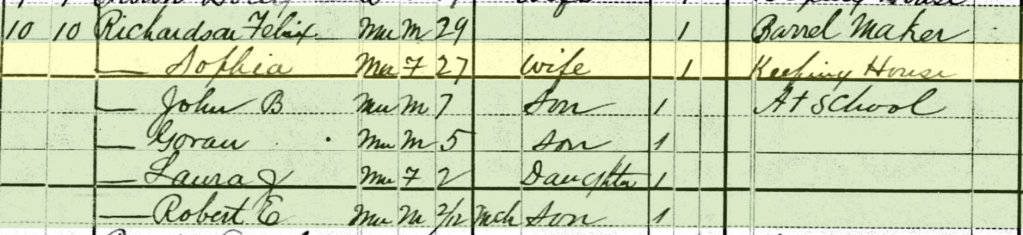 10 10 Richardson Felix Mu M 29 1 Barrel Maker
— Sophia Mu F 27 Wife 1 Keeping House
— John B Mu M 7 Son 1 At School
— Goran Mu M 5 Son 1
— Laura J Mu F 2 Daughter 1
— Robert E Mu M 2/12 Mch Son 1